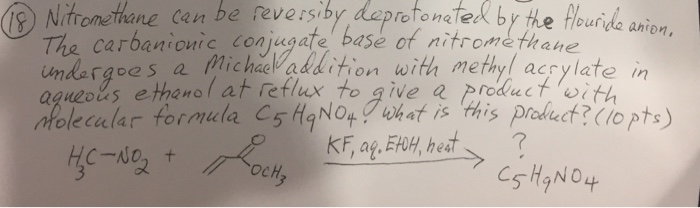 (18) Nitromethane can be reversiby deprotonated by the flouride anion.
The carbanionic conjugate base of nitromethane
undergoes a Michael addition with methyl acrylate in
aqueous ethanol at reflux to give a product with
Molecular formula C5H9NO4. What is this product? (10 pts)
H3C-NO2 + O OCH3 KF, aq. EtOH, heat ?
C5H9NO4